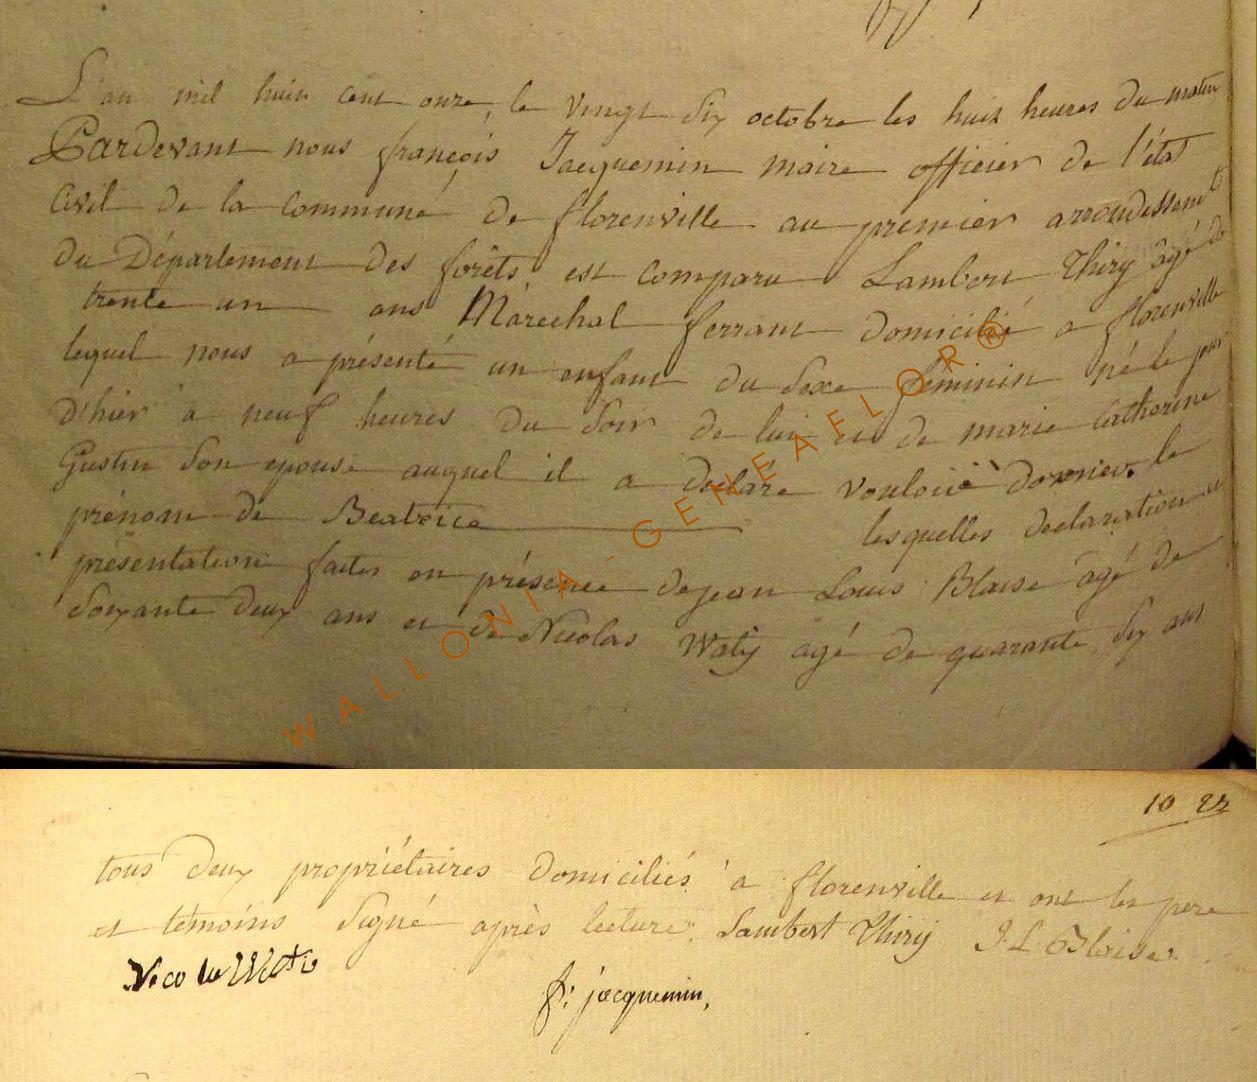 L'an mil huit cent onze, le vingt six octobre les huit heures du matin
Pardevant nous françois Jacquemin maire officier de l'état
Civil de la commune de florenville au premier arrondissement
du Département des forêts est comparu Lambert Thiry agé de
trente un ans Maréchal ferrant domicilié a florenville
lequel nous a présenté un enfant du sexe féminin né le jour
d'hier a neuf heures du soir de lui et de marie Catherine
Gustin son epouse auquel il a declaré vouloir donner le
prénom de Beatrice lesquelles declaration et
présentation faites en présence de jean Louis Blaise agé de
soixante deux ans et de Nicolas Waty agé de quarante six ans
WALLONIA - GENEAFLOR®
10 22
tous deux propriétaires domiciliés à florenville et ont les pere
et témoins signé après lecture. Lambert Thiry J. L. Blaise
f: jacquemin,